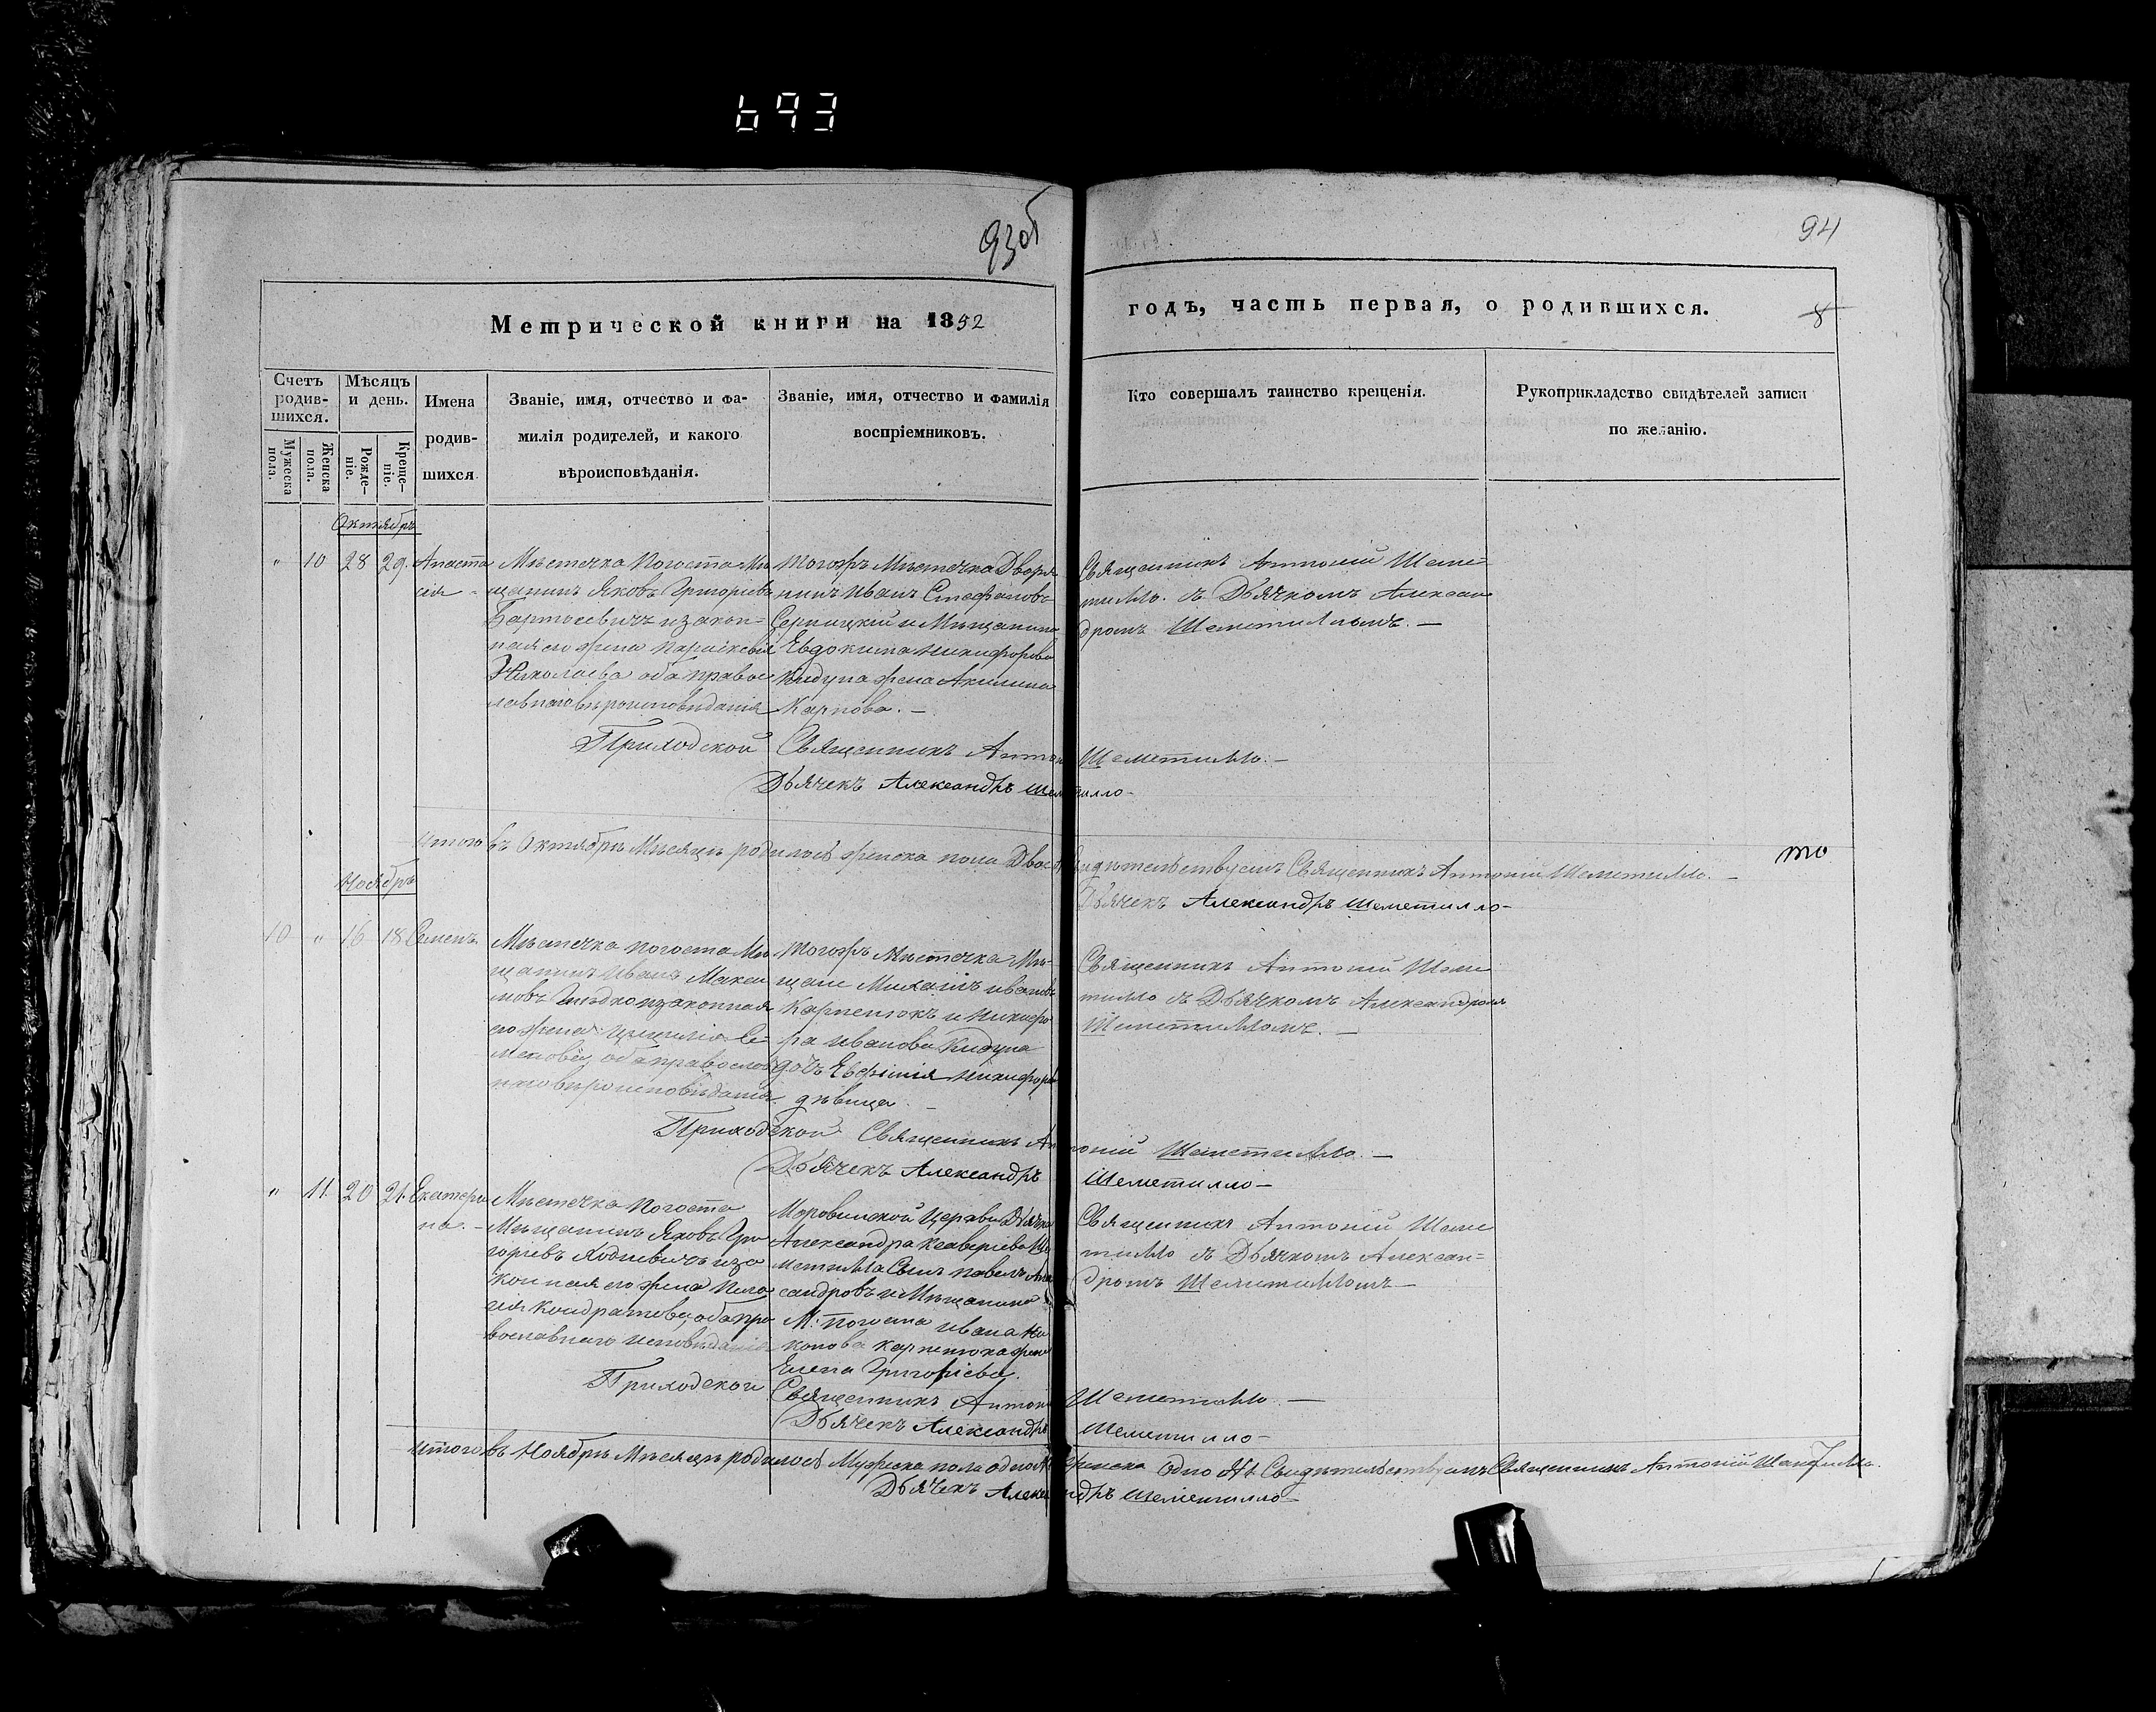 693
93об
94
Метрической книги на 1852
годъ, часть первая, о родившихся.
8
Счетъ родив-шихся.
Мѣсяцъ и день.
Имена родив-шихся
Званіе, имя, отчество и фа-
милія родителей, и какого
вѣроисповѣданія.
Званіе, имя, отчество и фамилія
воспріемниковъ.
Кто совершалъ таинство крещенія.
Рукоприкладство свидѣтелей записи
по желанію.
Мужеска пола.
Женска пола.
Рожде-ніе.
Креще-ніе.
Октябрь
" 10 28 29. Анаста
сія
Мѣстечка Погоста Мѣ
щанинъ Яковъ Григоріевъ
Бартосевичъ и закон-
ная его жена Параскевія
Николаева оба правос
лавнаго вѣроисповѣданія
Тогожъ Мѣстечка Дворя
нинъ Иванъ Стефановъ
Серницкій и Мѣщанина
Евдокима Никифорова
Кидуна жена Акилина
Карпова. –
Священникъ Антоній Шеме-
тилло. съ Дьячкомъ Алексан
дромъ Шеметилломъ. –
Приходской Священникъ Антон Шеметилло. –
Дьячекъ Александръ Шеметилло –
Итого въ Октябрѣ Мѣсяцѣ родилось женска пола Двое свидѣтельствуемъ Священникъ Антоній Шеметилло. –
то
Дьячекъ Александръ Шеметилло –
Ноябрь
10 " 16 18 Семенъ
Мѣстечка Погоста Мѣ
щанинъ Иванъ Макси
мовъ и законная
его жена Цицилія Се-
менова, оба православ
наго вѣроисповѣданія.
Тогожъ Мѣстечка Мѣ-
щане Михаилъ Ивановъ
Карпенюкъ и Никифо
ра Иванова Кидуна
дочь Евфимія Никифоров
дѣвица. –
Священникъ Антоній Шеме
тилло съ Дьячкомъ Александромъ
Шеметилломъ. –
Приходской Священникъ Антоній Шеметилло. –
Дьячекъ Александръ Шеметилло –
" 11. 20 21. Екатери
на. –
Мѣстечка Погоста
Мѣщанинъ Яковъ Гри
горіевъ Ходневичъ и за
конная его жена Пела
гія Кондратова, оба пра
вославнаго исповѣданія
Моровинской Церкви Дьячка
Александра Ксаверіева Ше
метилла Сынъ Павелъ Алек
сандровъ и Мѣщанина
М: Погоста Ивана Ни
конова Карпенюка жена
Елена Григоріева.
Священникъ Антоній Шеме
тилло съ Дьячкомъ Алексан-
дромъ Шеметилломъ –
Приходской Священникъ Антоні Шеметилло –
Дьячекъ Александръ Шеметилло –
Итого въ Ноябрѣ Мѣсяцѣ родилось Мужеска пола одно женска одно Свидѣтельствуемъ Священникъ Антоній Шеметилло.
Дьячекъ Александръ Шеметилло –